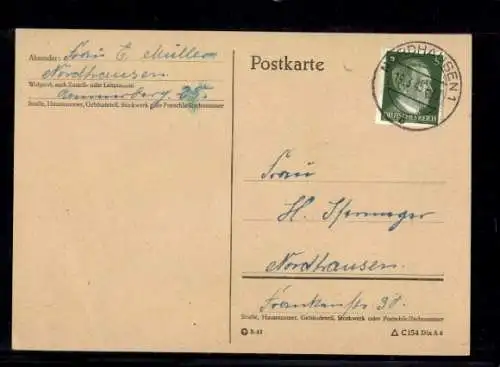 Absender: Frau E. Müller
Nordhausen
Wohnort, auch Zustell- oder Leitpostamt
Straße, Hausnummer, Gebäudeteil, Stockwerk oder Postschließfachnummer
Postkarte
NORDHAUSEN 1
DEUTSCHES REICH
Frau
H.
Nordhausen
Straße, Hausnummer, Gebäudeteil, Stockwerk oder Postschließfachnummer
C 154 Din A 6